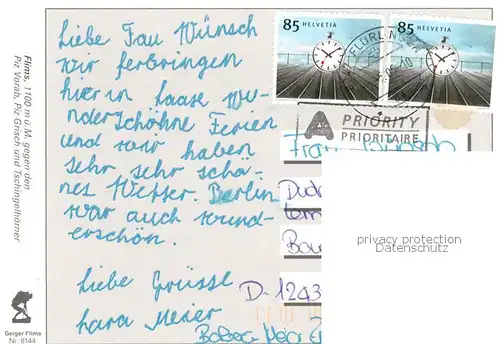 Liebe Fau Wünsch
wir ferbringen
hier in Laase wu-
nderschöhne Ferien
und wir haben
sehr sehr schö-
nes Wetter. Berlin
war auch wund-
erschön.
Liebe Grüsse
Lara Meier
Flims, 1100 m ü.M. gegen den
Piz Vorab, Piz Grisch und Tschingelhörner
Geiger Flims
Nr. 8144
85 HELVETIA
85 HELVETIA
A
PRIORITY
PRIORITAIRE
Frau
D-1243
privacy protection
Datenschutz